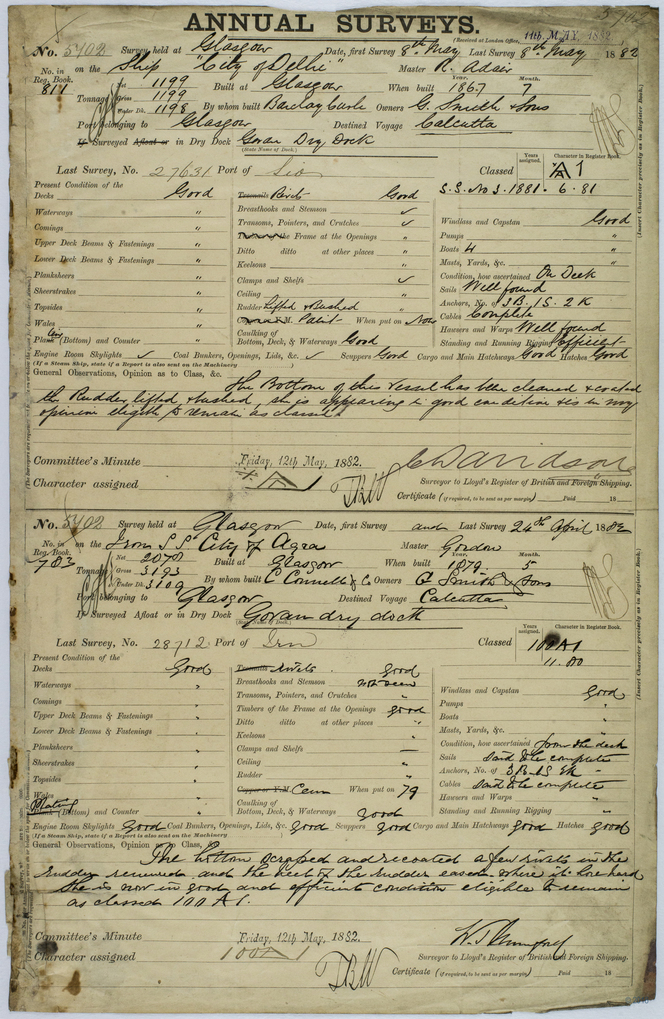 5702
ANNUAL SURVEYS.
(Received at London Office, 11th MAY 1882
No. 5702 Survey held at Glasgow Date, first Survey 8th May Last Survey 8th May 1882
No. in Reg. Book. on the Ship "City of Delhi" Master R. Adair
811 Tonnage Net 1199 Built at Glasgow When built Year. 1867 Month. 7
Gross 1199
Under Dk. 1198 By whom built Barclay Curle Owners G. Smith & Sons
Port belonging to Glasgow Destined Voyage Calcutta
If Surveyed Afloat or in Dry Dock Govan Dry Dock
(State Name of Dock.)
Last Survey, No. 27631 Port of Classed Years assigned. Character in Register Book. A 1
S.S. No 3. 1881. 6. 81
Present Condition of the
Decks Good
Waterways "
Comings "
Upper Deck Beams & Fastenings "
Lower Deck Beams & Fastenings "
Planksheers "
Sheerstrakes "
Topsides "
Wales "
Plank (Bottom) and Counter "
Treenails Rivets Good
Breasthooks and Stemson ✓
Transoms, Pointers, and Crutches ✓
Timbers of the Frame at the Openings "
Ditto ditto at other places "
Keelsons "
Clamps and Shelfs ✓
Ceiling "
Rudder Lifted & Bushed "
Copper or Y.M. Patent When put on Now
Caulking of
Bottom, Deck, & Waterways Good
Windlass and Capstan Good
Pumps "
Boats 4 "
Masts, Yards, &c. "
Condition, how ascertained On Deck
Sails Well found
Anchors, No. of 3B. 1S. 2K
Cables Complete
Hawsers and Warps Well found
Standing and Running Rigging Efficient
Engine Room Skylights ✓ Coal Bunkers, Openings, Lids, &c. ✓ Scuppers Good Cargo and Main Hatchways Good Hatches Good
(If a Steam Ship, state if a Report is also sent on the Machinery
General Observations, Opinion as to Class, &c.
The Bottom of this Vessel has been cleaned & coated
the Rudder lifted & bushed, she is appearing in good condition & is in my
opinion eligible to remain as classed.
Committee's Minute Friday, 12th May, 1882.
Character assigned A 1
Davidson
Surveyor to Lloyd's Register of British and Foreign Shipping.
Certificate (if required, to be sent as per margin) Paid 18
(Insert Character precisely as in Register Book.)
No. 5702 Survey held at Glasgow Date, first Survey and Last Survey 24th April 1882
No. in Reg. Book. on the Iron S S City of Agra Master Gordon
783 Tonnage Net 2078 Built at Glasgow When built Year. 1879 Month. 5
Gross 3193
Under Dk. 3109 By whom built C. Connell & Co Owners G Smith & Sons
Port belonging to Glasgow Destined Voyage Calcutta
If Surveyed Afloat or in Dry Dock Govan dry dock
(State Name of Dock.)
Last Survey, No. 28712 Port of Classed Years assigned. Character in Register Book. 100 A 1
11. 80
Present Condition of the
Decks Good
Waterways "
Comings "
Upper Deck Beams & Fastenings "
Lower Deck Beams & Fastenings "
Planksheers "
Sheerstrakes "
Topsides "
Wales "
Plating Plank (Bottom) and Counter "
Treenails Rivets good
Breasthooks and Stemson not seen
Transoms, Pointers, and Crutches "
Timbers of the Frame at the Openings good
Ditto ditto at other places "
Keelsons "
Clamps and Shelfs —
Ceiling "
Rudder "
Copper or Y.M. Cem When put on 79
Caulking of
Bottom, Deck, & Waterways good
Windlass and Capstan good
Pumps "
Boats "
Masts, Yards, &c. "
Condition, how ascertained from the deck
Sails said to be complete
Anchors, No. of
Cables said to be complete
Hawsers and Warps "
Standing and Running Rigging "
Engine Room Skylights Good Coal Bunkers, Openings, Lids, &c. good Scuppers good Cargo and Main Hatchways good Hatches good
(If a Steam Ship, state if a Report is also sent on the Machinery
General Observations, Opinion as to Class, &c.
The bottom scraped and recoated a few rivets in the
rudder renewed and the heel of the rudder eased where it bore hard
She is now in good and efficient condition eligible to remain
as classed 100 A 1.
Committee's Minute Friday, 12th May, 1882.
Character assigned 100 A 1
Surveyor to Lloyd's Register of British and Foreign Shipping.
Certificate (if required, to be sent as per margin) Paid 18
(Insert Character precisely as in Register Book.)